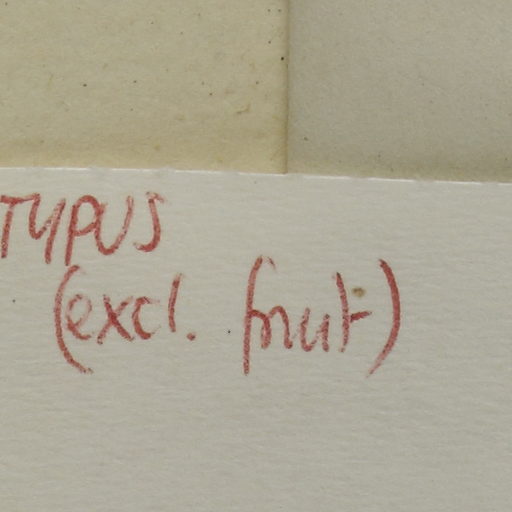 TYPUS
(excl. fruit)